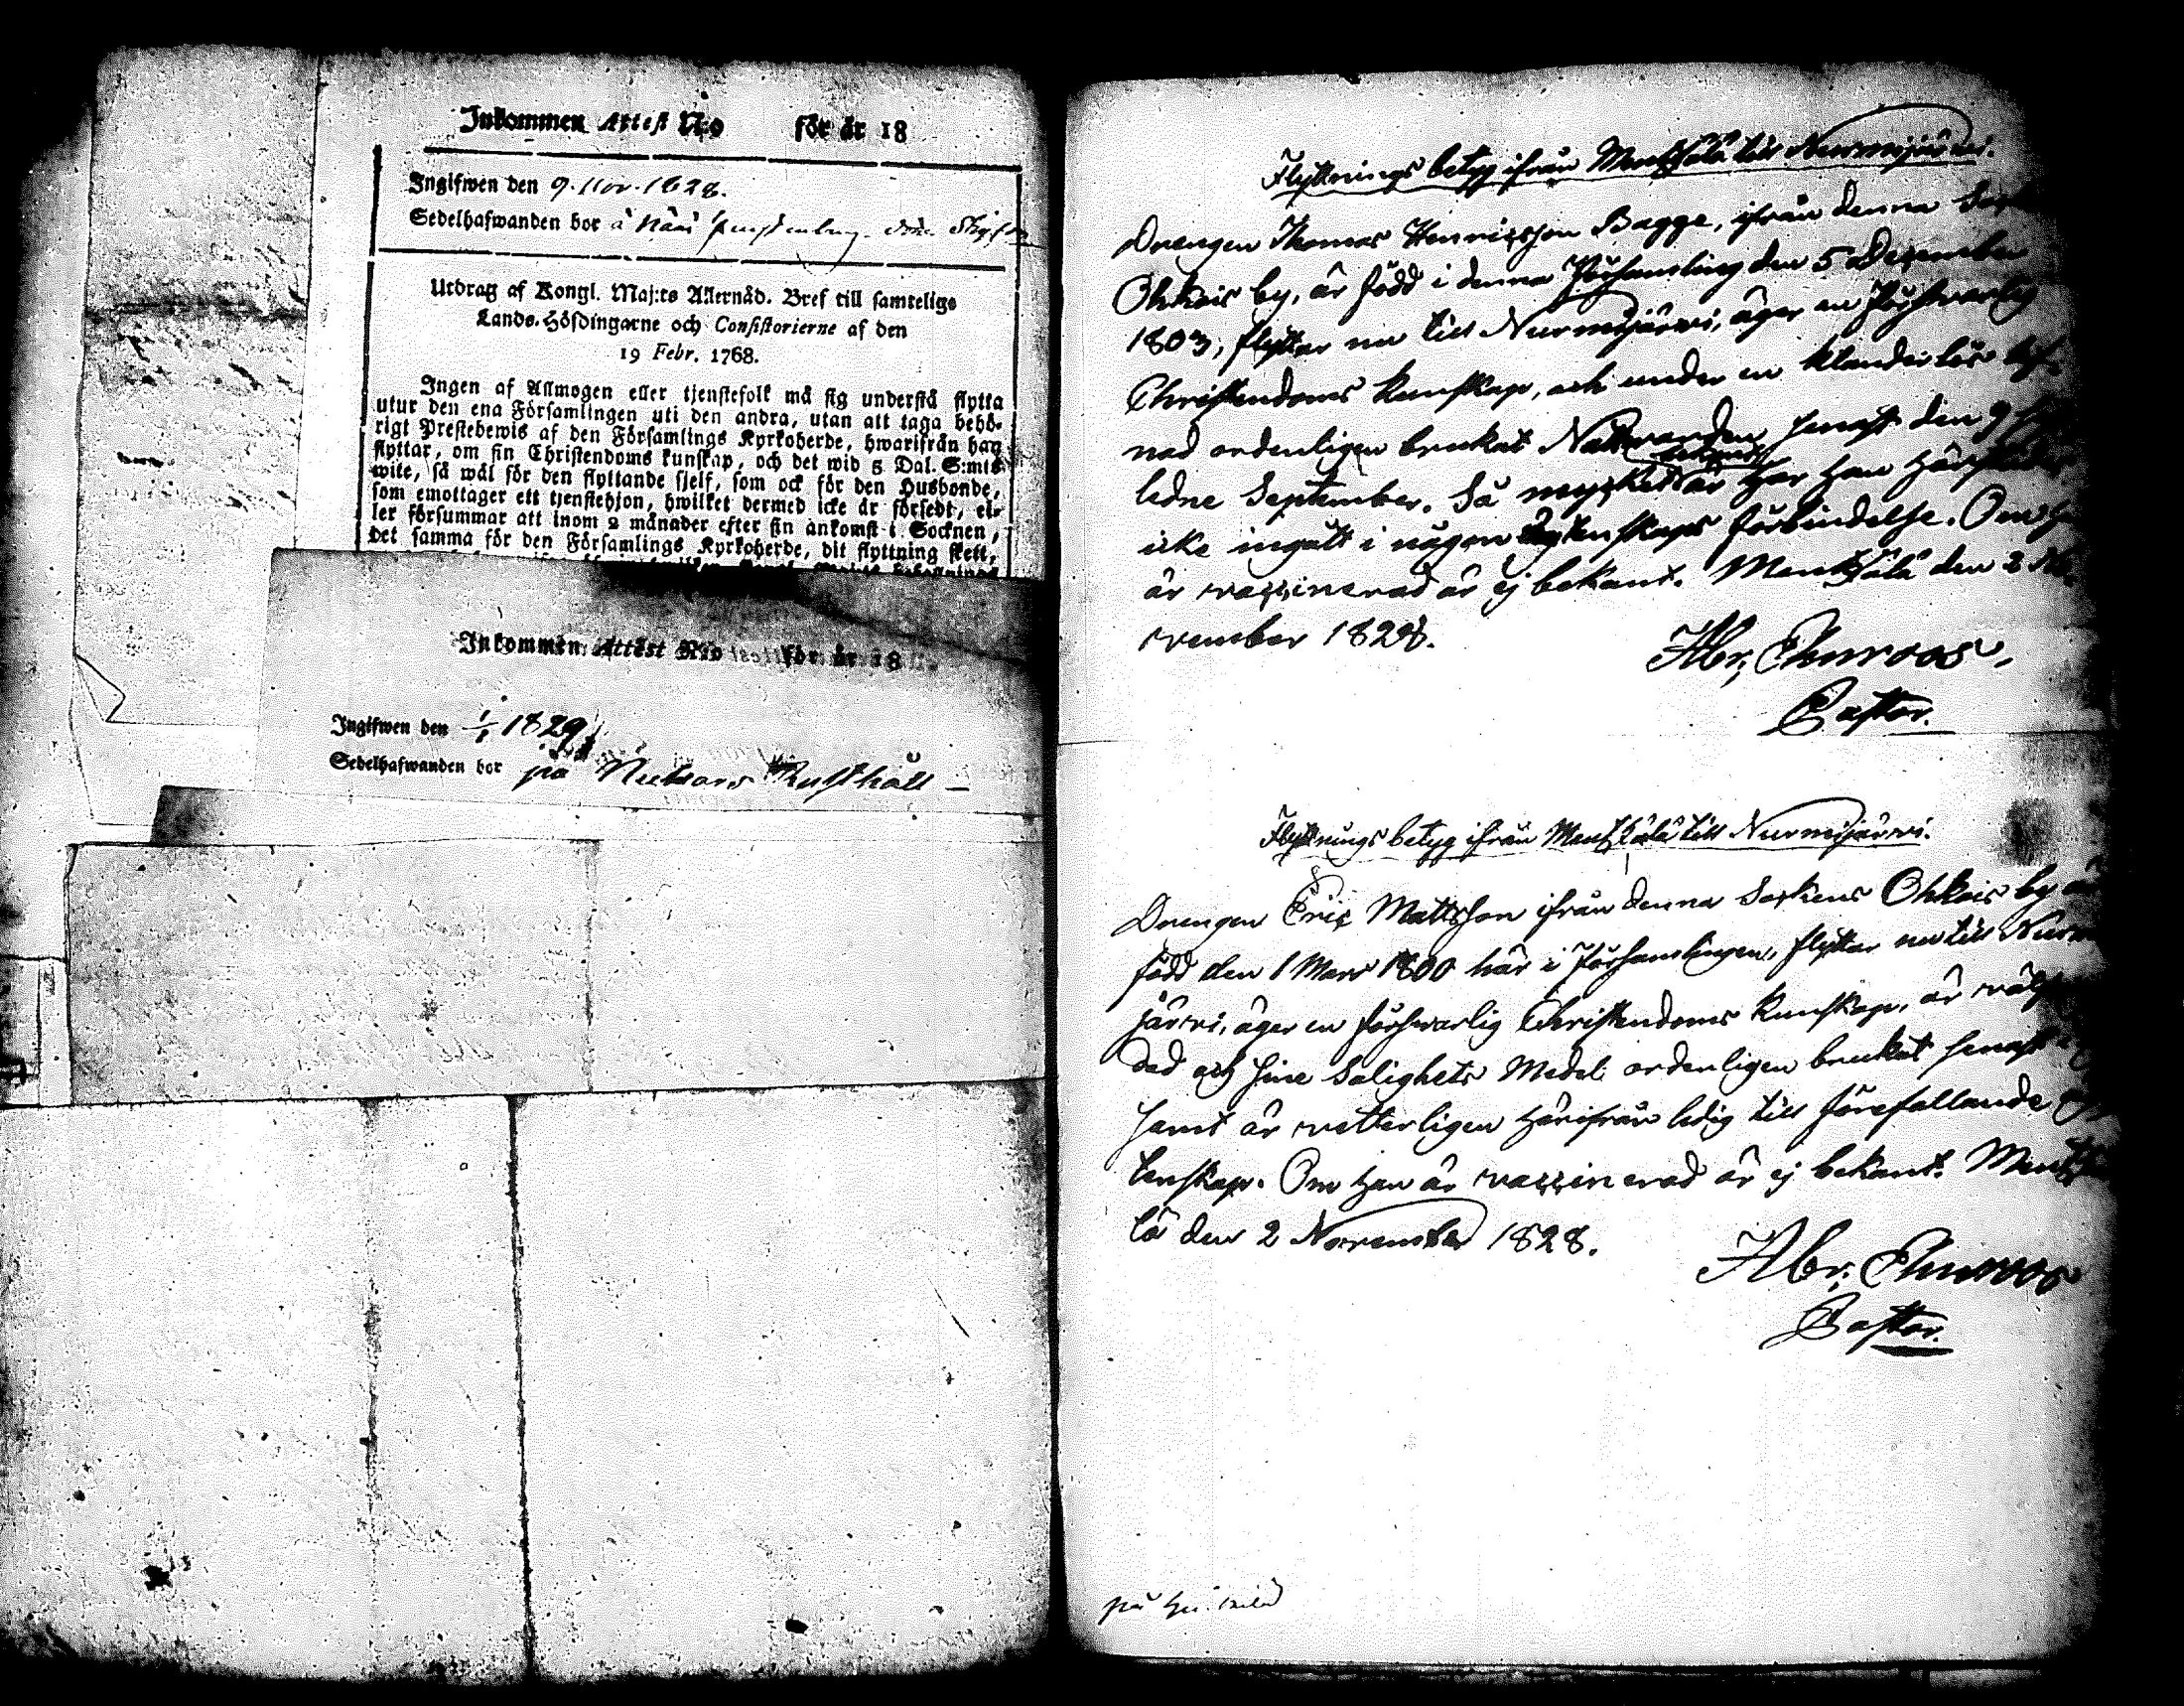 Inkommen Attest N:o för år 18
Ingifwen den 9. Nov. 1828.
Sedelhafwanden bor å
Utdrag af Kongl. Maj:ts Allernåd. Bref till samtelige
Lands-Höfdingarne och Consistorierne af den
19 Febr. 1768.
Ingen af Allmogen eller tjenstefolk må sig understå flytta
utur den ena Församlingen uti den andra, utan att taga behö-
rigt Prestebewis af den Församlings Kyrkoherde, hwarifrån han
flyttar, om sin Christendoms kunskap, och det wid 5 Dal. S:mts
wite, så wäl för den flyttande sjelf, som ock för den Husbonde,
som emottager ett tjenstehjon, hwilket dermed icke är försedt, el-
ler försummar att inom 2 månader efter sin ankomst i Socknen,
det samma för den Församlings Kyrkoherde, dit flyttning skett,
Inkommen Attest N:o för år 18
Ingifwen den 1/1 1829
Sedelhafwanden bor på Rusthåll
Flyttnings betyg ifrån Mentzälä till Nurmijärwi.
Drengen Thomas Henricsson Bagge, ifrån denna
Ohkois by, är född i denna Församling den 5 December
1803, flyttar nu till Nurmijärwi, äger en försvarlig
Christendoms kunskap, och under en klanderlös
nad ordenligen brukat Nattvarden senast den 9
ledne September. Så mycket bekandt är har han härstädes
icke ingått i någon Ägtenskaps förbindelse. Om
är vaccinerad är ej bekant. Mentzälä den 2 No-
vember 1828.
Abr. Churoos,
Pastor.
Flyttnings betyg ifrån Mentzälä till Nurmijärvi.
Drengen Eric Mattsson ifrån denna Sockens Ohkois by
född den 1 Mars 1800 här i Församlingen, flyttar nu till Nurmi
järvi, äger en försvarlig Christendoms kunskap, är
ded och sine Salighets Medel ordenligen brukat senast
samt är vetterligen härifrån ledig till förefallande
tenskap. Om han är vaccinerad är ej bekant. Mentzä
lä den 2 November 1828.
Abr. Churoos
Pastor.
på